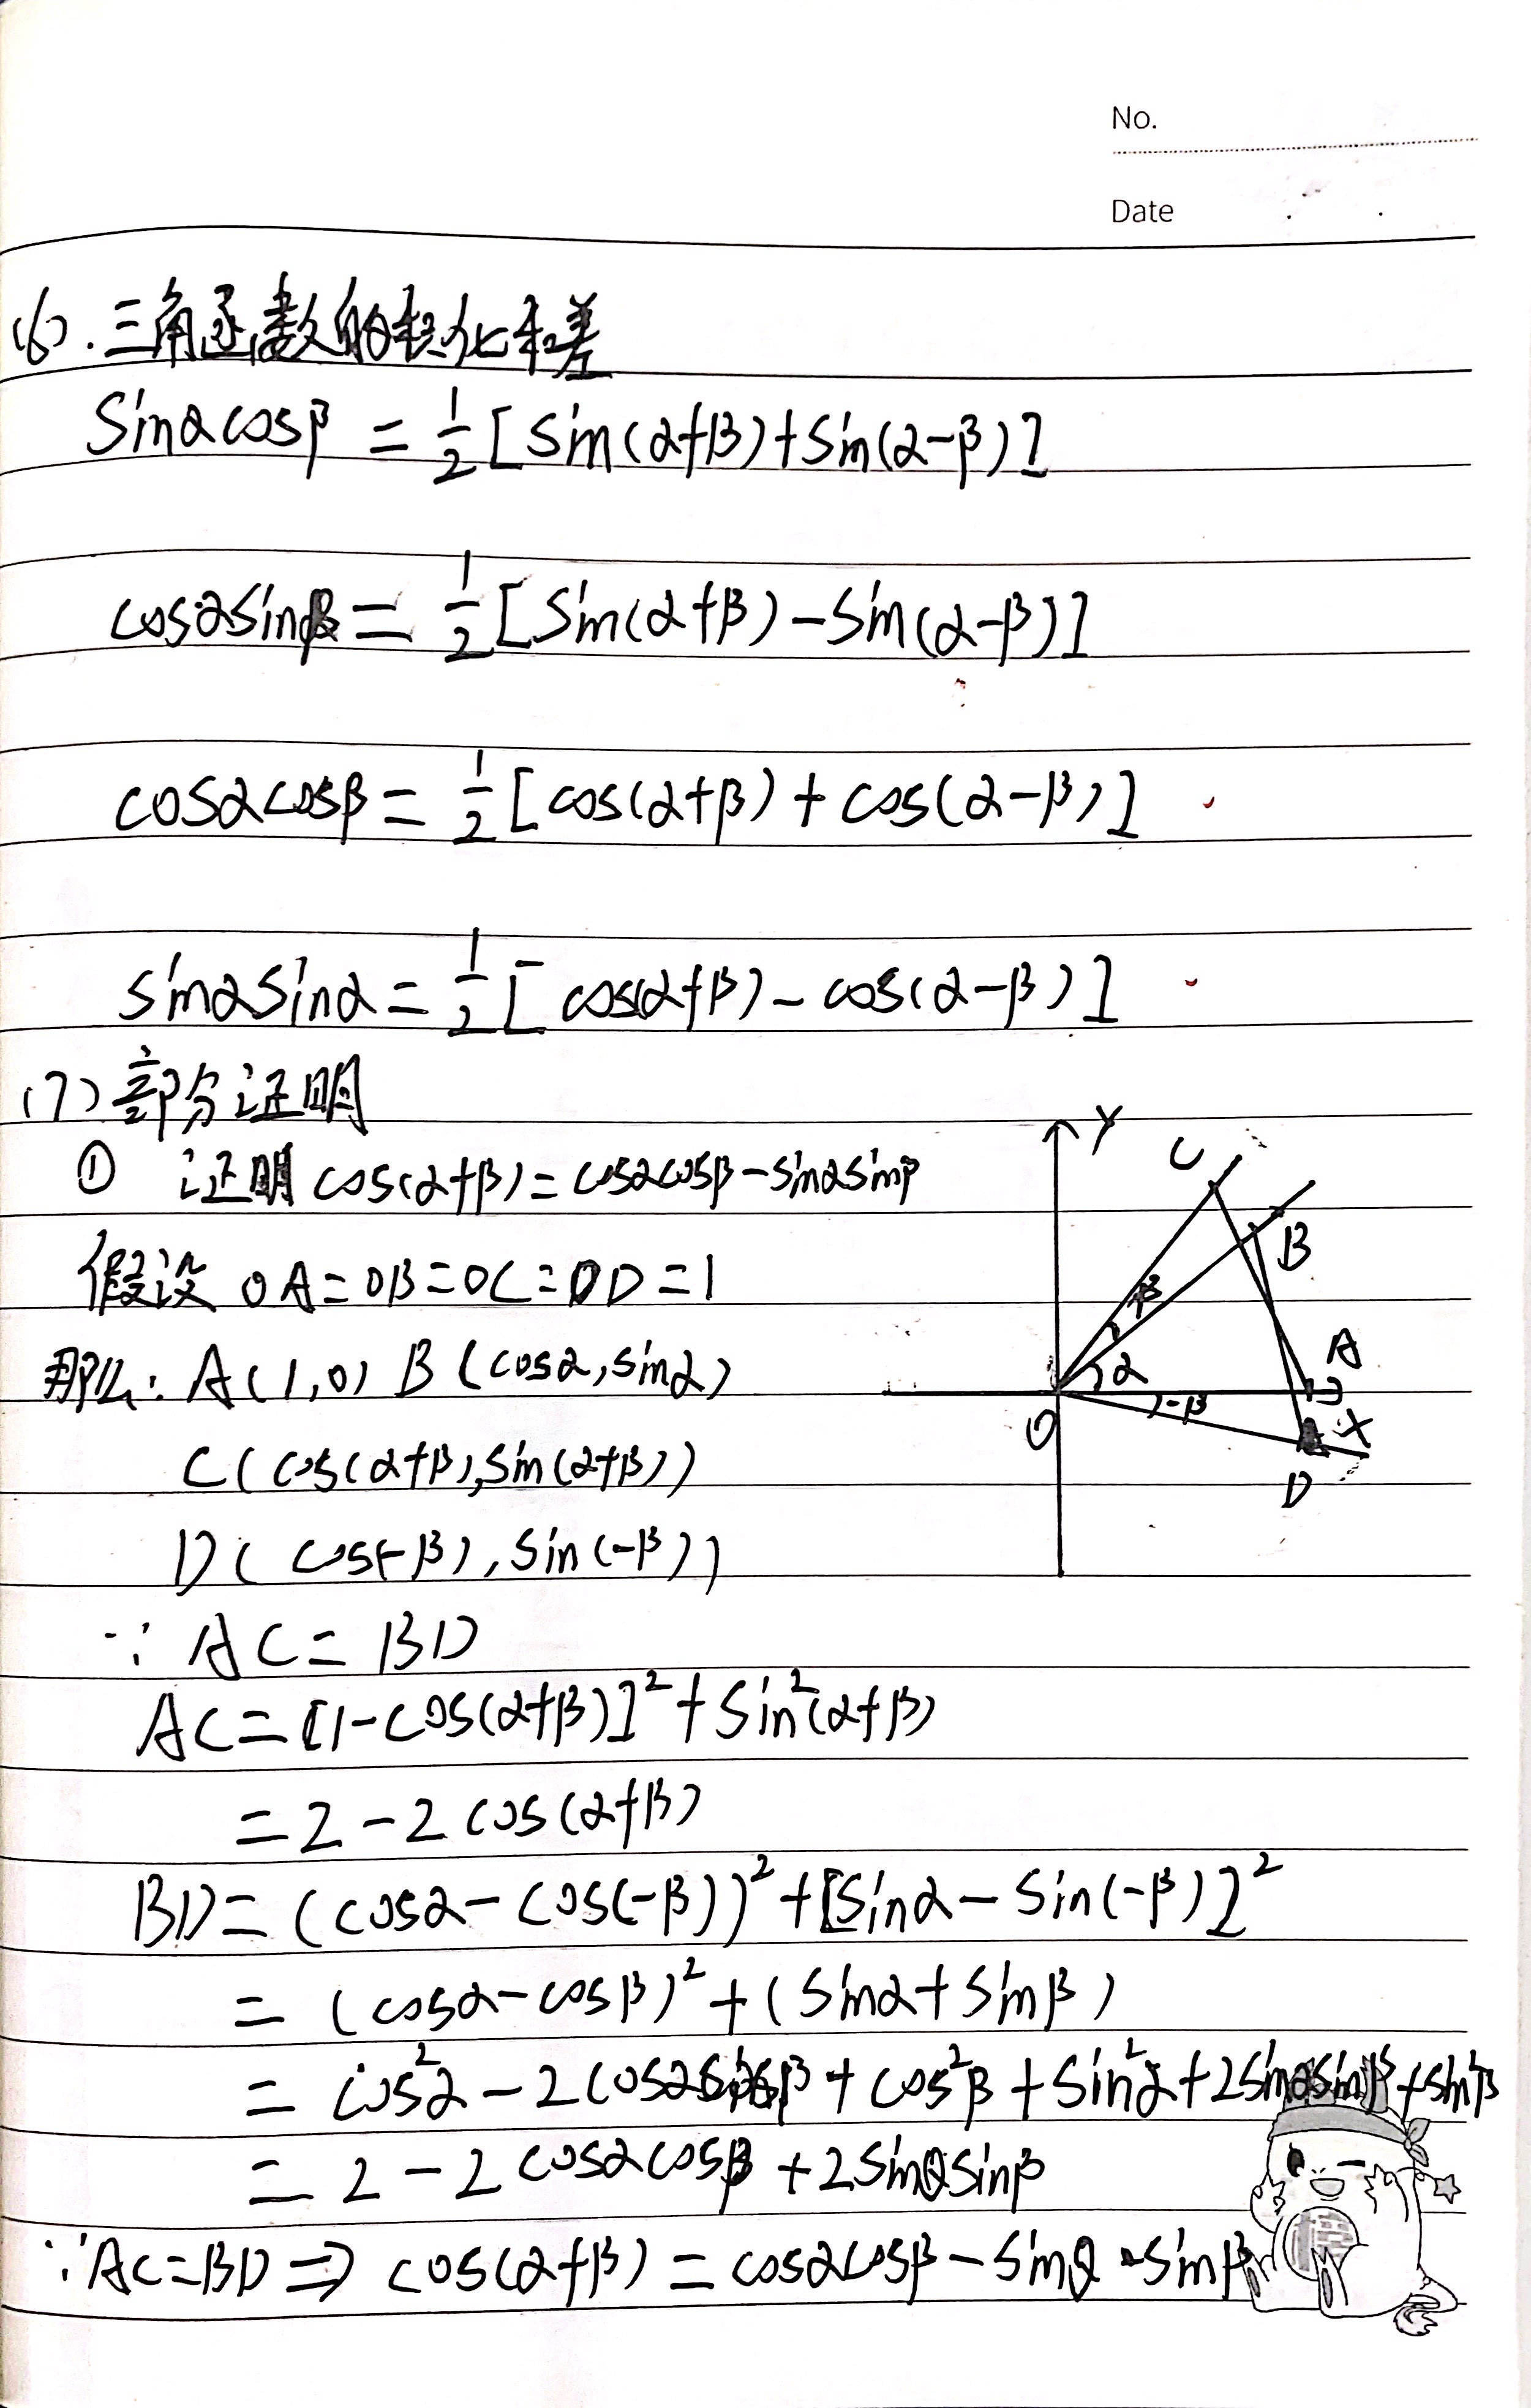 No.
Date
(6).三角函数的积化和差
sinαcosβ = 1/2[sin(α+β)+sin(α-β)]
cosαsinβ = 1/2[sin(α+β)-sin(α-β)]
cosαcosβ = 1/2[cos(α+β)+cos(α-β)]
sinαsinα = 1/2[cos(α+β)-cos(α-β)]
(7)部分证明
① 证明 cos(α+β)=cosαcosβ-sinαsinβ
假设 OA=OB=OC=OD=1
那么: A(1,0) B(cosα,sinα)
C(cos(α+β),sin(α+β))
D(cos(-β),sin(-β))
Y
C
B
β
A
α
-β
O
X
D
∵ AC=BD
AC=[1-cos(α+β)]²+sin²(α+β)
=2-2cos(α+β)
BD=(cosα-cos(-β))²+[sinα-sin(-β)]²
=(cosα-cosβ)²+(sinα+sinβ)
=cos²α-2cosαcosβ+cos²β+sin²α+2sinαsinβ+sin²β
=2-2cosαcosβ+2sinαsinβ
∵AC=BD⇒cos(α+β)=cosαcosβ-sinα·sinβ